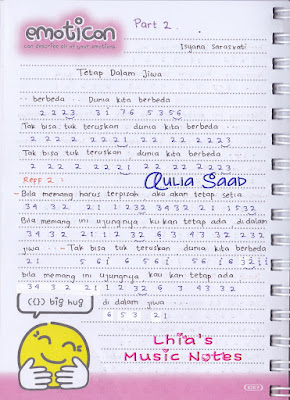 emoticon
can describe all of your emotions
Part 2
Isyana Sarasvati
Tetap Dalam Jiwa
berbeda... Dunia kita berbeda
2 2 2 3 3 1 7 6 5 3 5 6
Tak bisa tuk teruskan dunia kita berbeda
2 2 2 2 2 2 2 1 2 2 2 2 2 2 3
Tak bisa tuk teruskan dunia kita berbeda
2 2 2 2 2 2 2 1 2 2 2 2 2 2 3
Reff 2 :
Qulia Saad
Bila memang harus terpisah aku akan tetap setia
34 32 21 12 1232 34 32 21 1232
Bila memang ini ujungnya ku kan tetap ada di dalam
34 32 12 3212 32 63 43 32 232
jiwa - Tak bisa tuk teruskan dunia kita berbeda
21 5 6 i 6 5 6 i 5 6 i 6
bila memang ini ujungnya kau kan tetap ada
34 32 12 1212 32 6 3 43 32
({}) big hug
di dalam jiwa
6 5 3 2 1
Lhia's
Music Notes